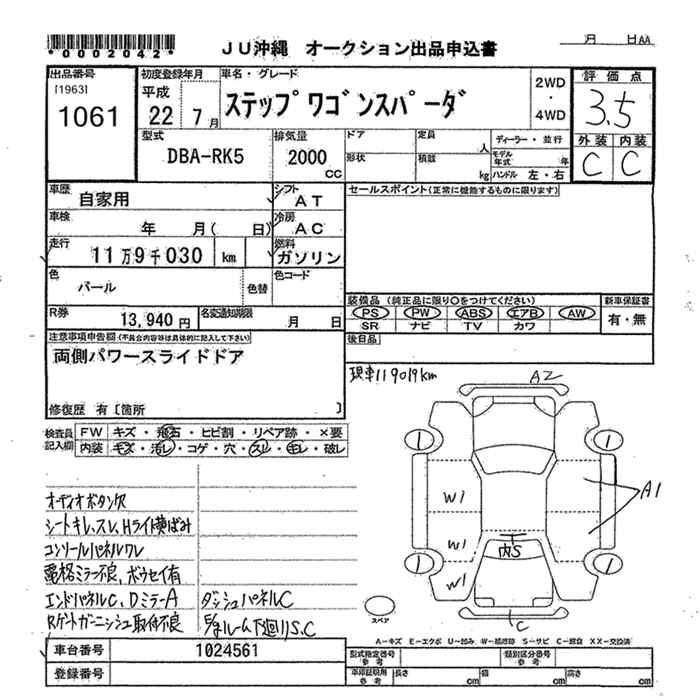 *0002042*
JU沖縄 オークション出品申込書
月 日AA
出品番号
[1963]
1061
初度登録年月
平成
22 7月
車名・グレード
ステップワゴンスパーダ
2WD
・
4WD
評価点
3.5
外装 内装
C C
型式
DBA-RK5
排気量
2000
CC
ドア
形状
定員
人
積載
kg
ディーラー・並行
モデル年式 年
ハンドル 左・右
車歴
自家用
シフト
AT
セールスポイント(正常に機能するものに限ります)
車検
年 月( 日)
冷房
AC
走行
11万9千030 km
燃料
ガソリン
色
パール
色替
色コード
R券
13,940円
名変通知期限
月 日
装備品(純正品に限り○をつけてください)
PS PW ABS エアB AW
SR ナビ TV カワ
新車保証書
有・無
後日品
注意事項申告欄(不具合内容等は具体的に記入して下さい)
両側パワースライドドア
修復歴 有〔箇所 〕
現車119019km
検査員
記入欄
FW キズ・飛石・ヒビ割・リペア跡・×要
内装 キズ・汚レ・コゲ・穴・スレ・キレ・破レ
オーディオボタン欠
シートキレ、スレ、Hライト黄ばみ
コンソールパネルワレ
電格ミラー不良、ボウセイ有
エンドパネルC、DミラーA
Rゲートガーニッシュ取付不良
ダッシュパネルC
下廻りS.C
A2
A1
W1
W1
W1
内S
C
スペア
A-キズ E-エクボ U-凹み W-補修跡 S-サビ C-腐食 XX-交換済
車台番号
1024561
登録番号
型式指定番号
参考
類別区分番号
参考
車印証明用
参考
長さ cm
幅 cm
高さ cm